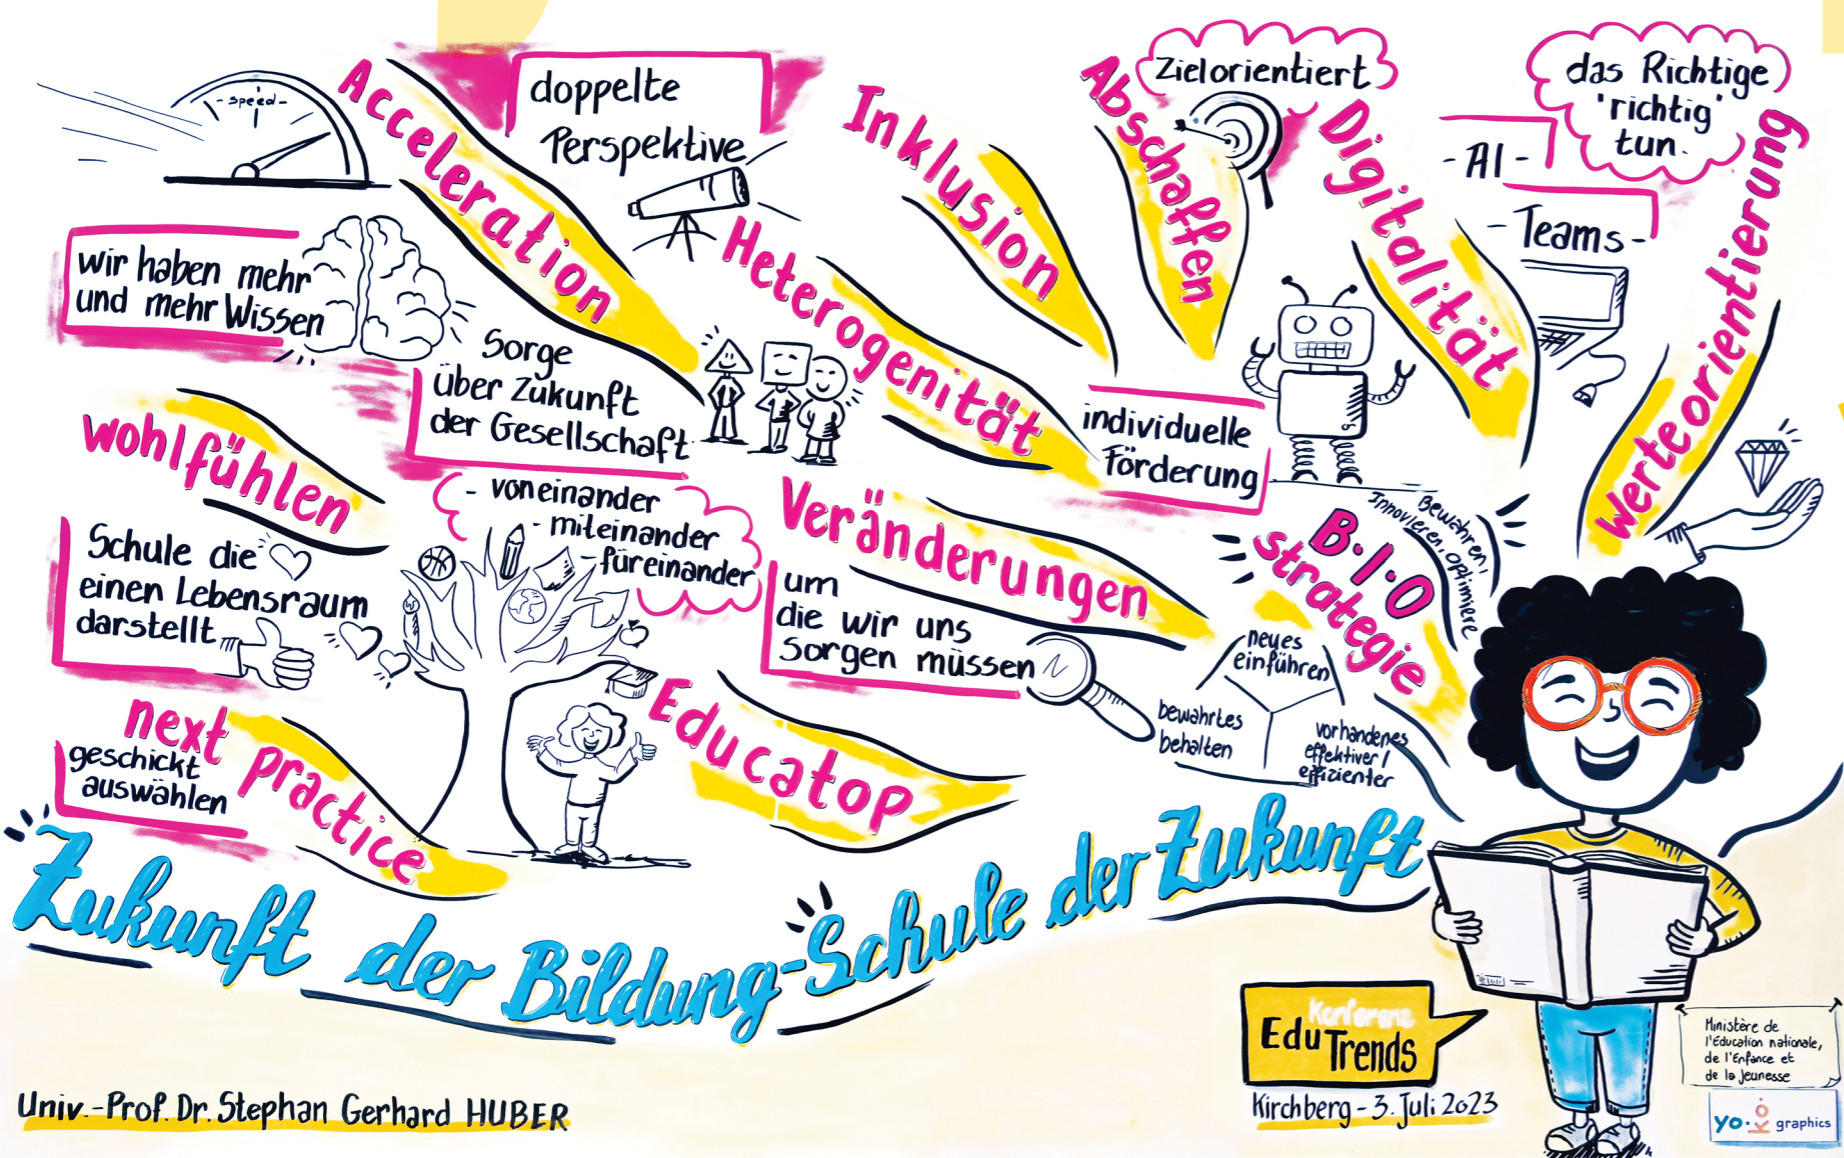 - speed -
Acceleration
doppelte
Perspektive
Inklusion
Abschaffen
Zielorientiert
Digitalität
- AI -
- Teams -
das Richtige
'richtig'
tun.
Werteorientierung
wir haben mehr
und mehr Wissen
Sorge
über Zukunft
der Gesellschaft
Heterogenität
individuelle
Förderung
wohlfühlen
Schule die
einen Lebensraum
darstellt
- voneinander
- miteinander
- füreinander
Veränderungen
um
die wir uns
sorgen müssen
B.I.O
strategie
Bewahren,
Innovieren, Optimiere
neues
einführen
bewährtes
behalten
vorhandenes
effektiver/
effizienter
next practice
geschickt
auswählen
Educatop
Zukunft der Bildung-Schule der Zukunft
Univ.-Prof. Dr. Stephan Gerhard HUBER
Konferenz
Edu Trends
Kirchberg - 3. Juli 2023
Ministère de
l'Éducation nationale,
de l'Enfance et
de la Jeunesse
yo.kó. graphics